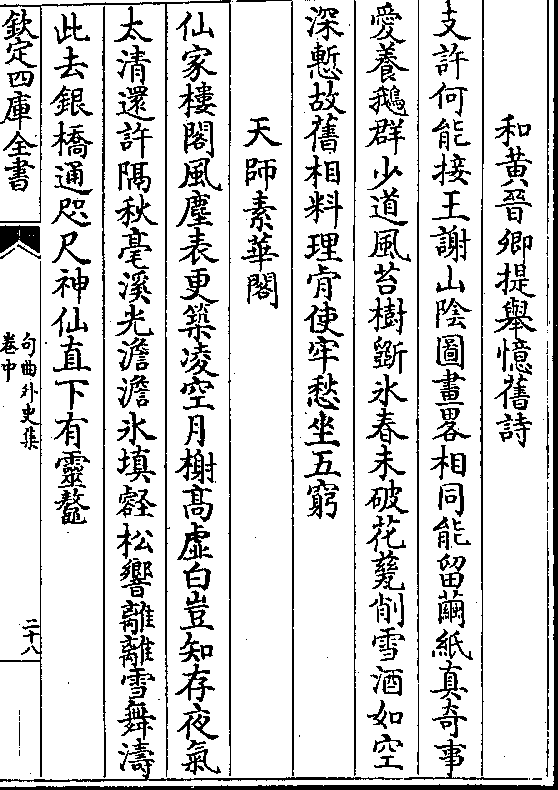 和黃晉卿提舉憶舊詩
支許何能接王謝山陰圖畫畧相同能留繭紙真奇事
愛養鵝群少道風苔樹斵氷春未破花甆削雪酒如空
深慙故舊相料理肯使牢愁坐五窮
天師素華閣
仙家樓閣風塵表更築凌空月榭高虛白豈知存夜氣
太清還許隔秋毫溪光澹澹氷填壑松響離離雪舞濤
此去銀橋通咫尺神仙直下有靈鼇
欽定四庫全書
句曲外史集
卷中
二十八